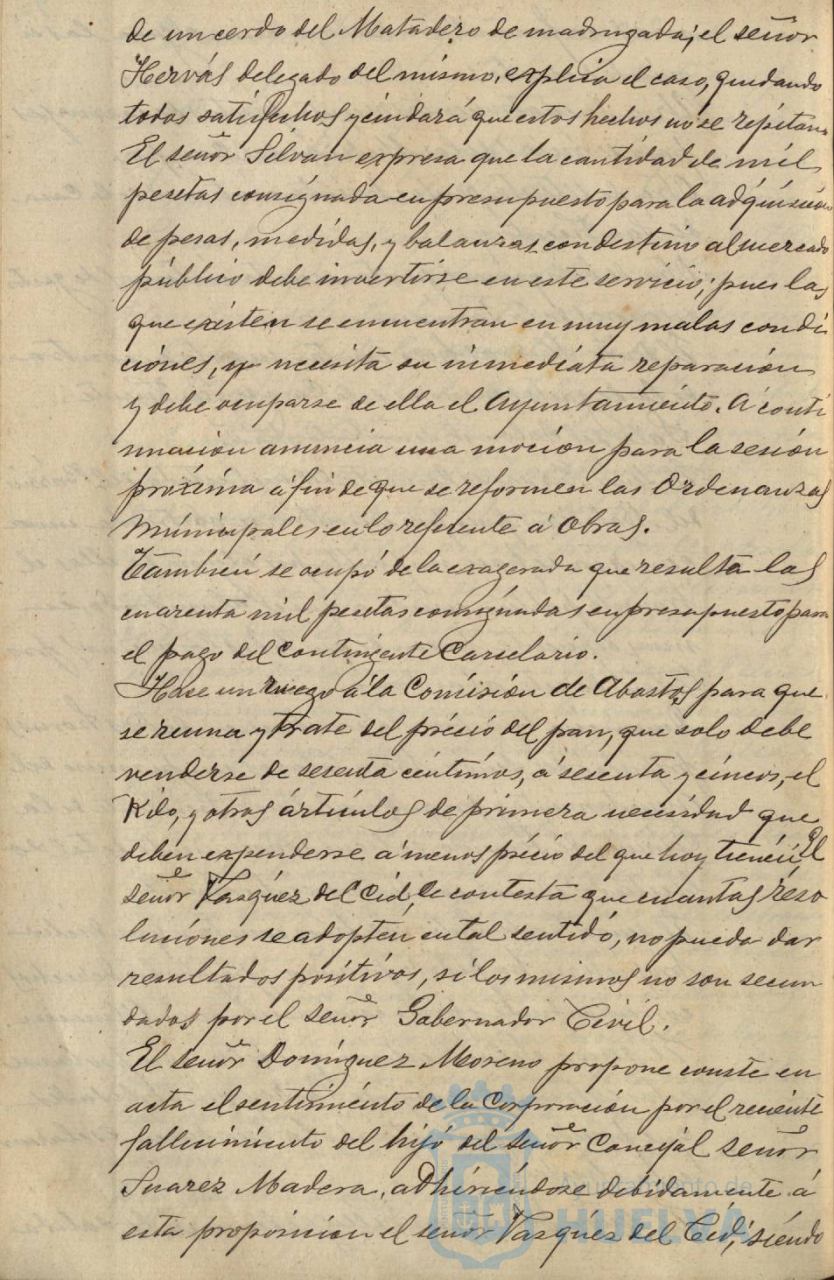 de un cerdo del Matadero de madrugada; el señor
Hervás delegado del mismo, explica el caso, quedando
todos satisfechos y cuidará que estos hechos no se repitan.
El señor Silvan expresa que la cantidad de mil
pesetas consignada en presupuesto para la adquisición
de pesas, medidas, y balanzas con destino al mercado
público debe invertirse en este servicio; pues las
que existen se encuentran en muy malas condi
ciones, y necesita su inmediata reparación
y debe ocuparse de ella el Ayuntamiento. A conti
nuación anuncia una moción para la sesión
próxima á fin de que se reformen las Ordenanzas
Municipales en lo referente á Obras.
También se ocupó de la exagerada que resulta las
cuarenta mil pesetas consignadas en presupuesto para
el pago del Contingente Carcelario.
Hase un ruego á la Comisión de Abastos para que
se reuna y trate del précio del pan, que solo debe
venderse de sesenta céntimos, á sesenta y cinco, el
Kilo, y otros ártículos de primera necesidad que
deben expenderse a menos précio del que hoy tienen. El
señor Vasquez del Cid, le contesta que cuantas reso
luciones se adopten en tal sentido, no pueda dar
resultados positivos, si los mismos no son secun
dados por el señor Gobernador Civil.
El señor Domínguez Moreno propone conste en
acta el sentimiento de la Corporación por el reciente
fallecimiento del hijo del señor Concejal señor
Suarez Madera, adhiriéndose debidamente á
esta proposicion el señor Vazquez del Cid; siendo
Ayuntamiento de
HUELVA